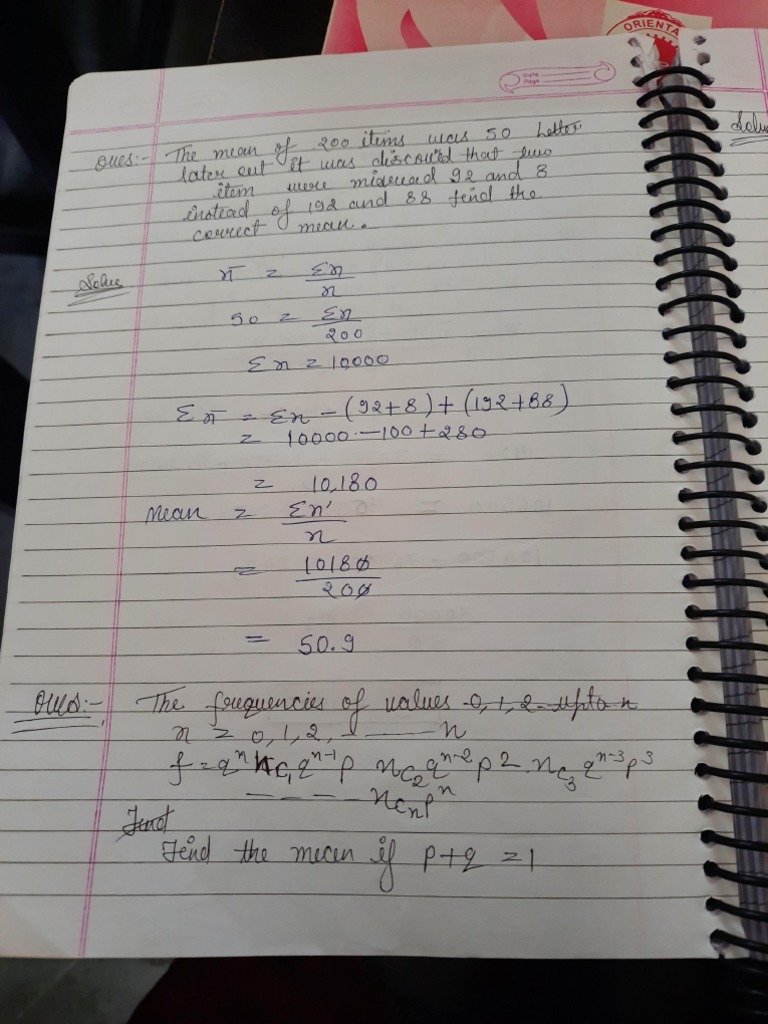 ORIENTA
Date
Page
Ques:- The mean of 200 items was 50 
later out it was discovid that two
item were misread 92 and 8
instead of 192 and 88 find the
correct mean.
Solue
x̄ = Σx/n
50 = Σx/200
Σx = 10,000
Σx̄ = Σx - (92+8) + (192+88)
= 10000 - 100 + 280
= 10,180
Mean = Σx'/n
= 10180/200
= 50.9
Ques:- The frequencies of values 0, 1, 2 - upto n
x = 0, 1, 2, - —— n
f = qⁿ nc₁qⁿ⁻¹p nc₂qⁿ⁻²p2. nc₃qⁿ⁻³p³
— — — - ncₙpⁿ
Find
Find the mean if p+q = 1
Solu